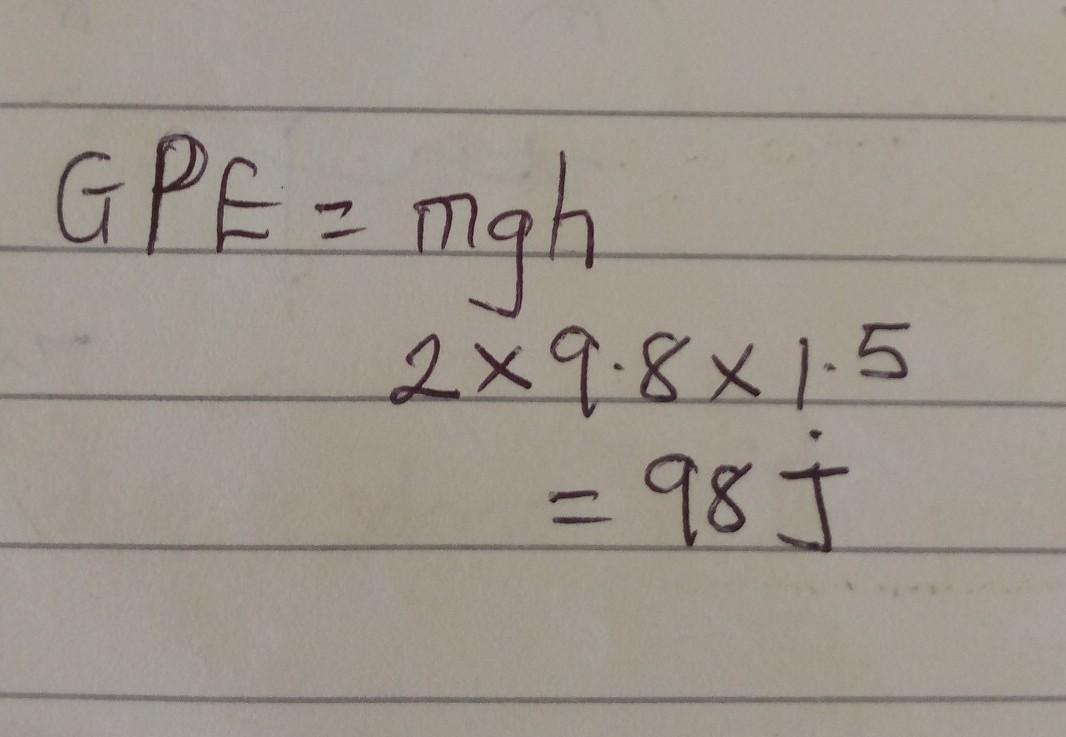 GPE = mgh
2 × 9.8 × 1.5
= 98 J